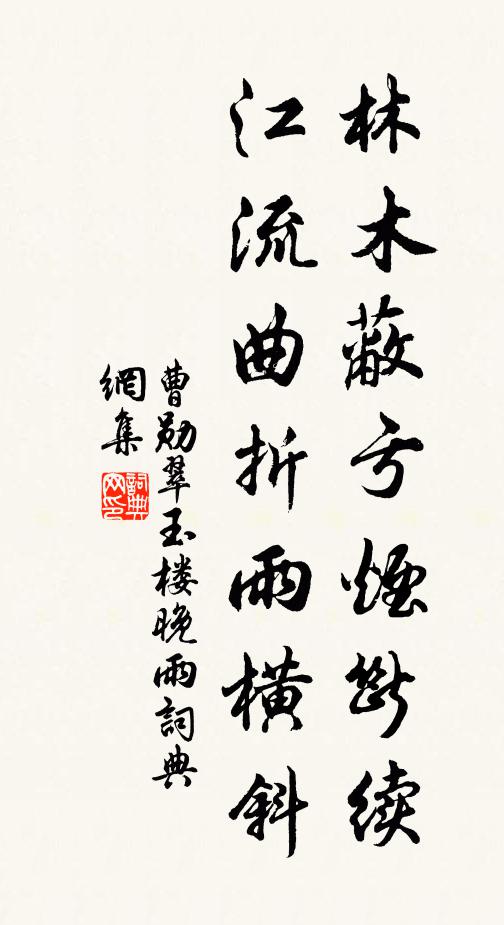 林木蔽亏煙断续
江流曲折雨横斜
曹勋翠玉楼晚雨詞典
網集
詞典
网印